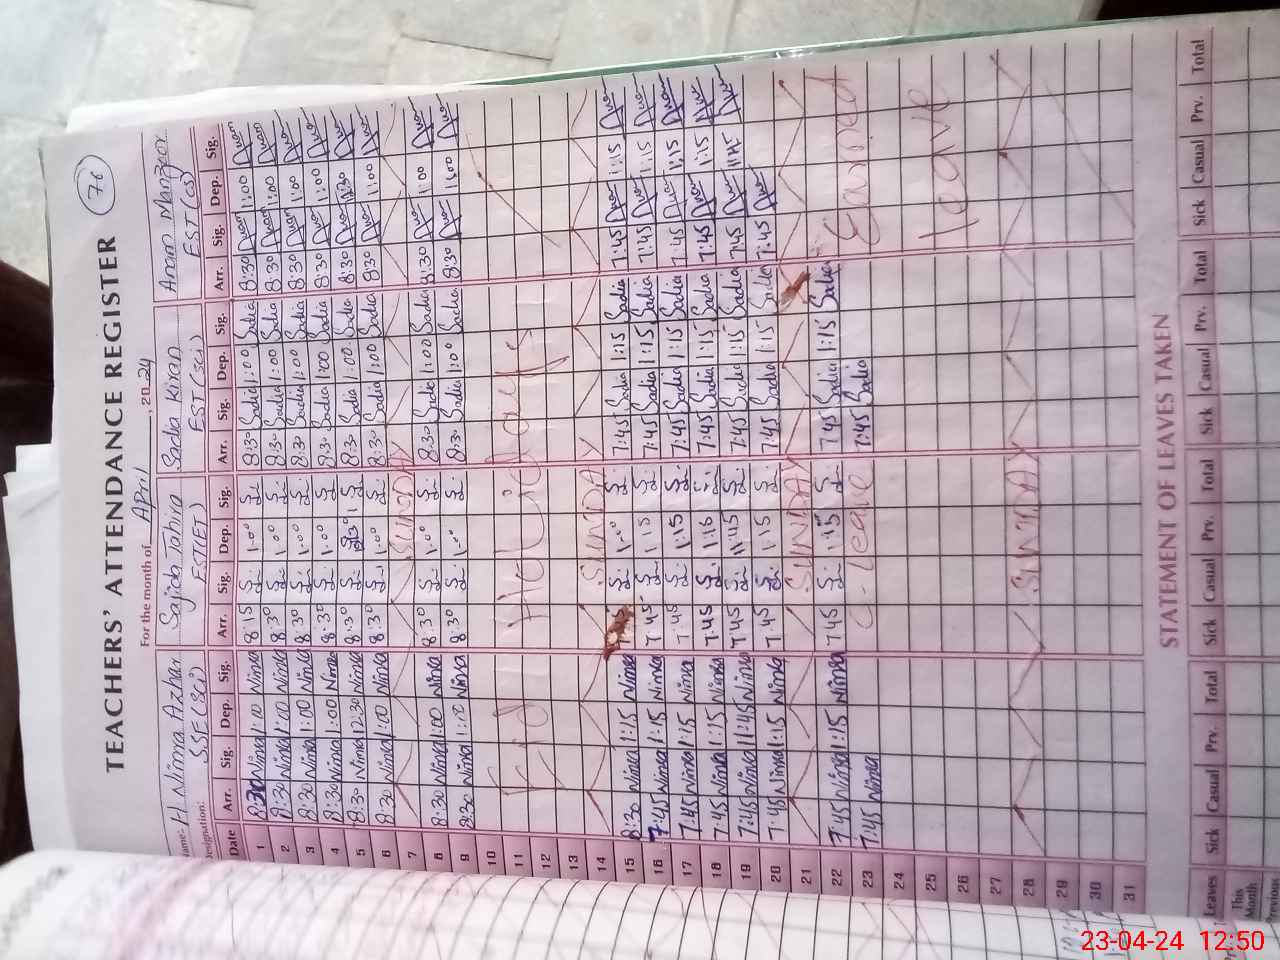 76
TEACHERS' ATTENDANCE REGISTER
For the month of April, 20 24
Name:- H. Nimra Azhar Sajida Tahira Sadia Kiran Anam Manzoor
Designation: SSE (Sci) EST(ET) EST (Sci) EST (CS)
Date Arr. Sig. Dep. Sig. Arr. Sig. Dep. Sig. Arr. Sig. Dep. Sig. Arr. Sig. Dep. Sig.
1 8:30 Nimra 1:00 Nimra 8:15 1:00 8:30 Sadia 1:00 Sadia 8:30 Anam 1:00 Anam
2 8:30 Nimra 1:00 Nimra 8:30 1:00 8:30 Sadia 1:00 Sadia 8:30 Anam 1:00 Anam
3 8:30 Nimra 1:00 Nimra 8:30 1:00 8:30 Sadia 1:00 Sadia 8:30 1:00
4 8:30 Nimra 1:00 Nimra 8:30 1:00 8:30 Sadia 1:00 Sadia 8:30 1:00
5 8:30 Nimra 12:30 Nimra 8:30 8:30 Sadia 1:00 Sadia 8:30 12:30
6 8:30 Nimra 1:00 Nimra 8:30 1:00 8:30 Sadia 1:00 Sadia 8:30 1:00
7 SUNDAY
8 8:30 Nimra 1:00 Nimra 8:30 1:00 8:30 Sadia 1:00 Sadia 8:30 1:00
9 8:30 Nimra 1:00 Nimra 8:30 1:00 8:30 Sadia 1:00 Sadia 8:30 1:00
10
11 Holidays
12
13
14 SUNDAY
15 8:30 Nimra 1:15 Nimra 1:00 7:45 Sadia 1:15 Sadia 7:45 1:15
16 7:45 Nimra 1:15 Nimra 7:45 1:15 7:45 Sadia 1:15 Sadia 7:45 1:15
17 7:45 Nimra 1:15 Nimra 7:45 1:15 7:45 Sadia 1:15 Sadia 7:45 1:15
18 7:45 Nimra 1:15 Nimra 7:45 1:15 7:45 Sadia 1:15 Sadia 7:45 1:15
19 7:45 Nimra 11:45 Nimra 7:45 11:45 7:45 Sadia 1:15 Sadia 7:45 11:45
20 7:45 Nimra 1:15 Nimra 7:45 1:15 7:45 Sadia 1:15 Sadia 7:45
21 SUNDAY
22 7:45 Nimra 1:15 Nimra 7:45 1:15 7:45 Sadia 1:15 Sadia Earned
23 7:45 Nimra C-leave 7:45 Sadia
24
25 leave
26
27
28 SUNDAY
29
30
31
STATEMENT OF LEAVES TAKEN
Leaves Sick Casual Prv. Total Sick Casual Prv. Total Sick Casual Prv. Total Sick Casual Prv. Total
This Month
Previous
23-04-24 12:50